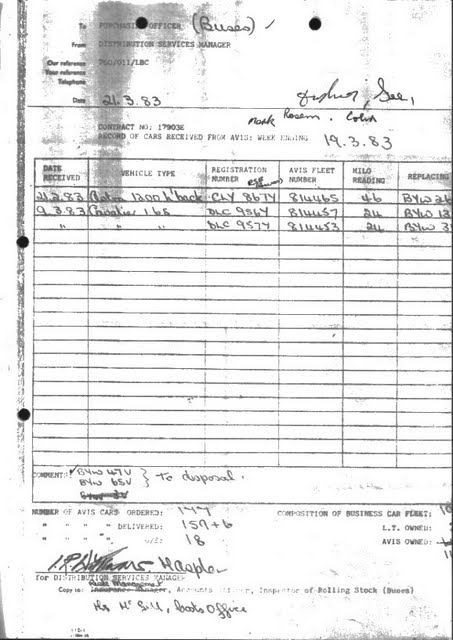 To PURCHASING OFFICER (Buses)
From DISTRIBUTION SERVICES MANAGER
Our reference 760/011/LBC
Your reference
Telephone
Date 21.3.83
See,
Mark Rosem. Colin
CONTRACT NO: 17903E
RECORD OF CARS RECEIVED FROM AVIS: WEEK ENDING 19.3.83
DATE RECEIVED VEHICLE TYPE REGISTRATION NUMBER AVIS FLEET NUMBER MILO READING REPLACING
21.3.83 1300 h'back CLY 867Y 814465 46 BYW
9.3.83 Cavalier 1.6S DLC 956Y 814457 24 BYW
" " " DLC 957Y 814453 24 BYW
COMMENT: BYW 47V
BYW 65V } to disposal.
NUMBER OF AVIS CARS ORDERED: 177 COMPOSITION OF BUSINESS CAR FLEET:
" " " " DELIVERED: 159+6 L.T. OWNED:
" " " " O/S: 18 AVIS OWNED:
for DISTRIBUTION SERVICES MANAGER
Copy to: Insurance Manager, Accounts Officer, Inspector of Rolling Stock (Buses)
Office